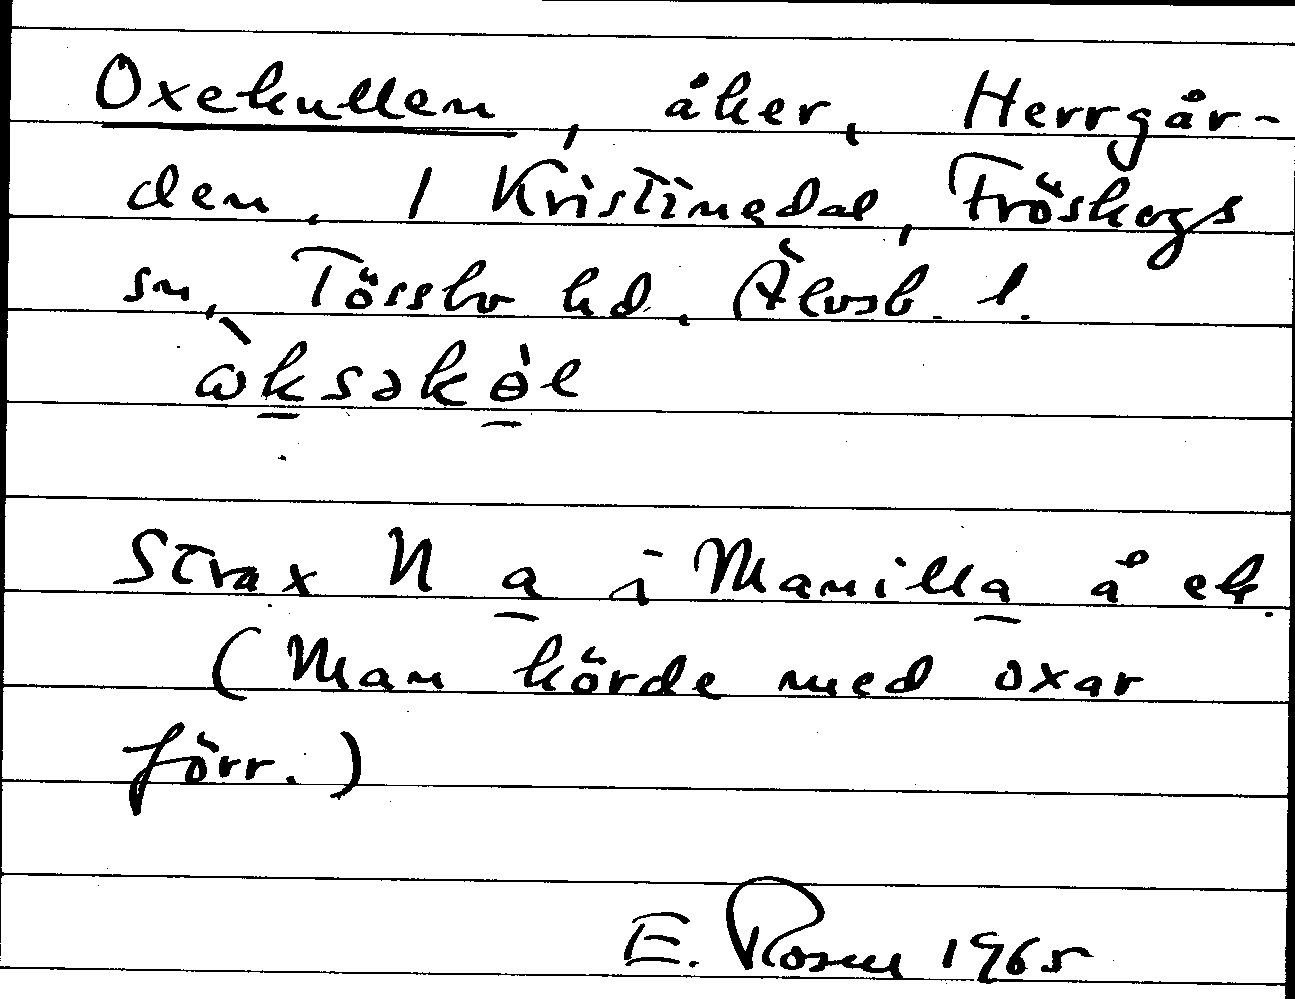 Oxekullen, åker, Herrgår-
den, 1 Kristinedal, Fröskogs
sn, Tössbo hd. Älvsb. l.
ὼksəkɵ̀l
Strax N a i Manilla å ek.
(Man körde med oxar
förr.)
E. Rosen 1965